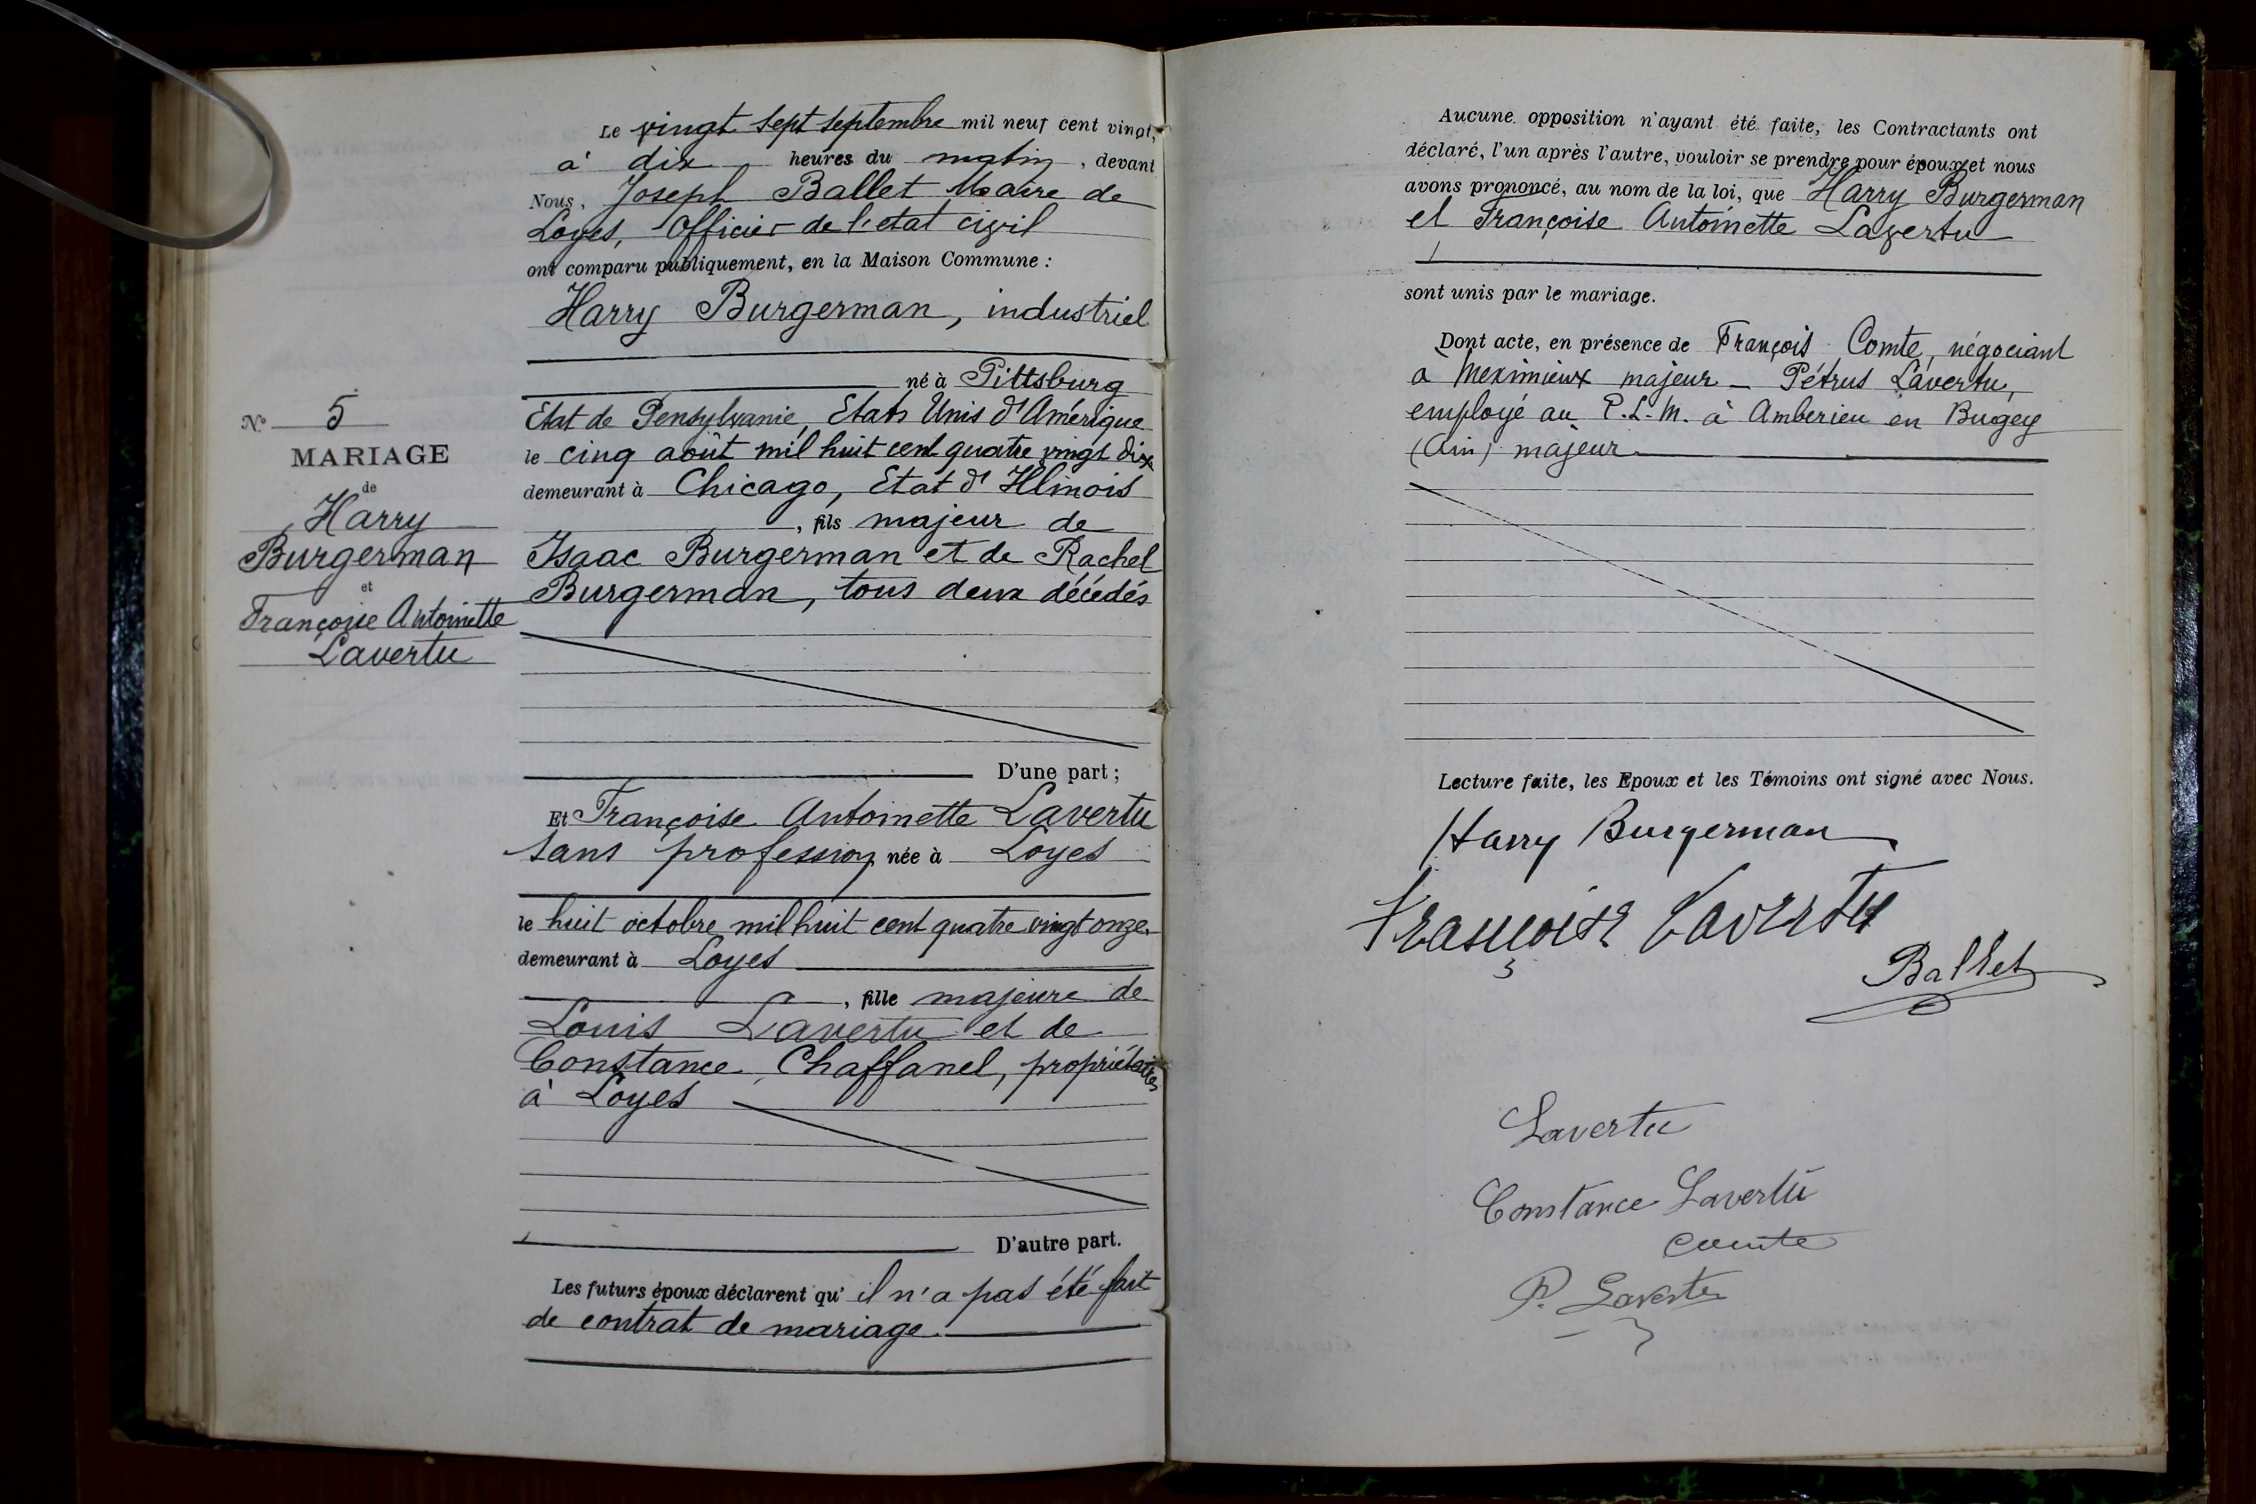 N° 5
MARIAGE
de
Harry
Burgerman
et
Françoise Antoinette
Lavertu
Le vingt sept septembre mil neuf cent vingt,
à dix heures du matin, devant
Nous, Joseph Ballet Maire de
Loyes, Officier de l'etat civil
ont comparu publiquement, en la Maison Commune :
Harry Burgerman, industriel
né à Pittsburg
Etat de Pensylvanie, Etats Unis d'Amérique
le cinq août mil huit cent quatre vingt dix
demeurant à Chicago, Etat d'Illinois
, fils majeur de
Isaac Burgerman et de Rachel
Burgerman, tous deux décédés
D'une part ;
Et Françoise Antoinette Lavertu
sans profession née à Loyes
le huit octobre mil huit cent quatre vingt onze
demeurant à Loyes
, fille majeure de
Louis Lavertu et de
Constance Chaffanel, propriétaires
à Loyes
D'autre part.
Les futurs époux déclarent qu'il n'a pas été fait
de contrat de mariage.
Aucune opposition n'ayant été faite, les Contractants ont
déclaré, l'un après l'autre, vouloir se prendre pour époux, et nous
avons prononcé, au nom de la loi, que Harry Burgerman
et Françoise Antoinette Lavertu
sont unis par le mariage.
Dont acte, en présence de François Comte, négociant
a Meximieux majeur - Pétrus Lavertu,
employé au P.L.M. à Amberieu en Bugey
(Ain) majeur
Lecture faite, les Epoux et les Témoins ont signé avec Nous.
Harry Burgerman
Françoise Lavertu
Ballet
Lavertu
Constance Lavertu
Comte
P. Lavertu